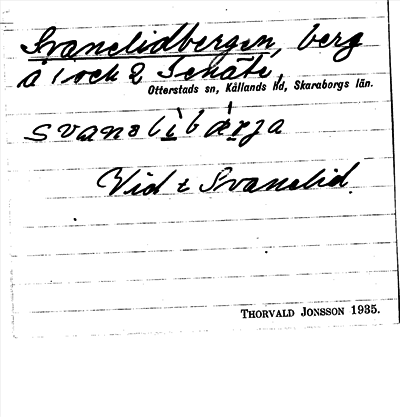 Svanelidbergen, berg
å 1 och 2 Tenäte,
Otterstads sn, Kållands hd, Skaraborgs län.
svanelibærja
Vid t Svanelid.
THORVALD JONSSON 1935.